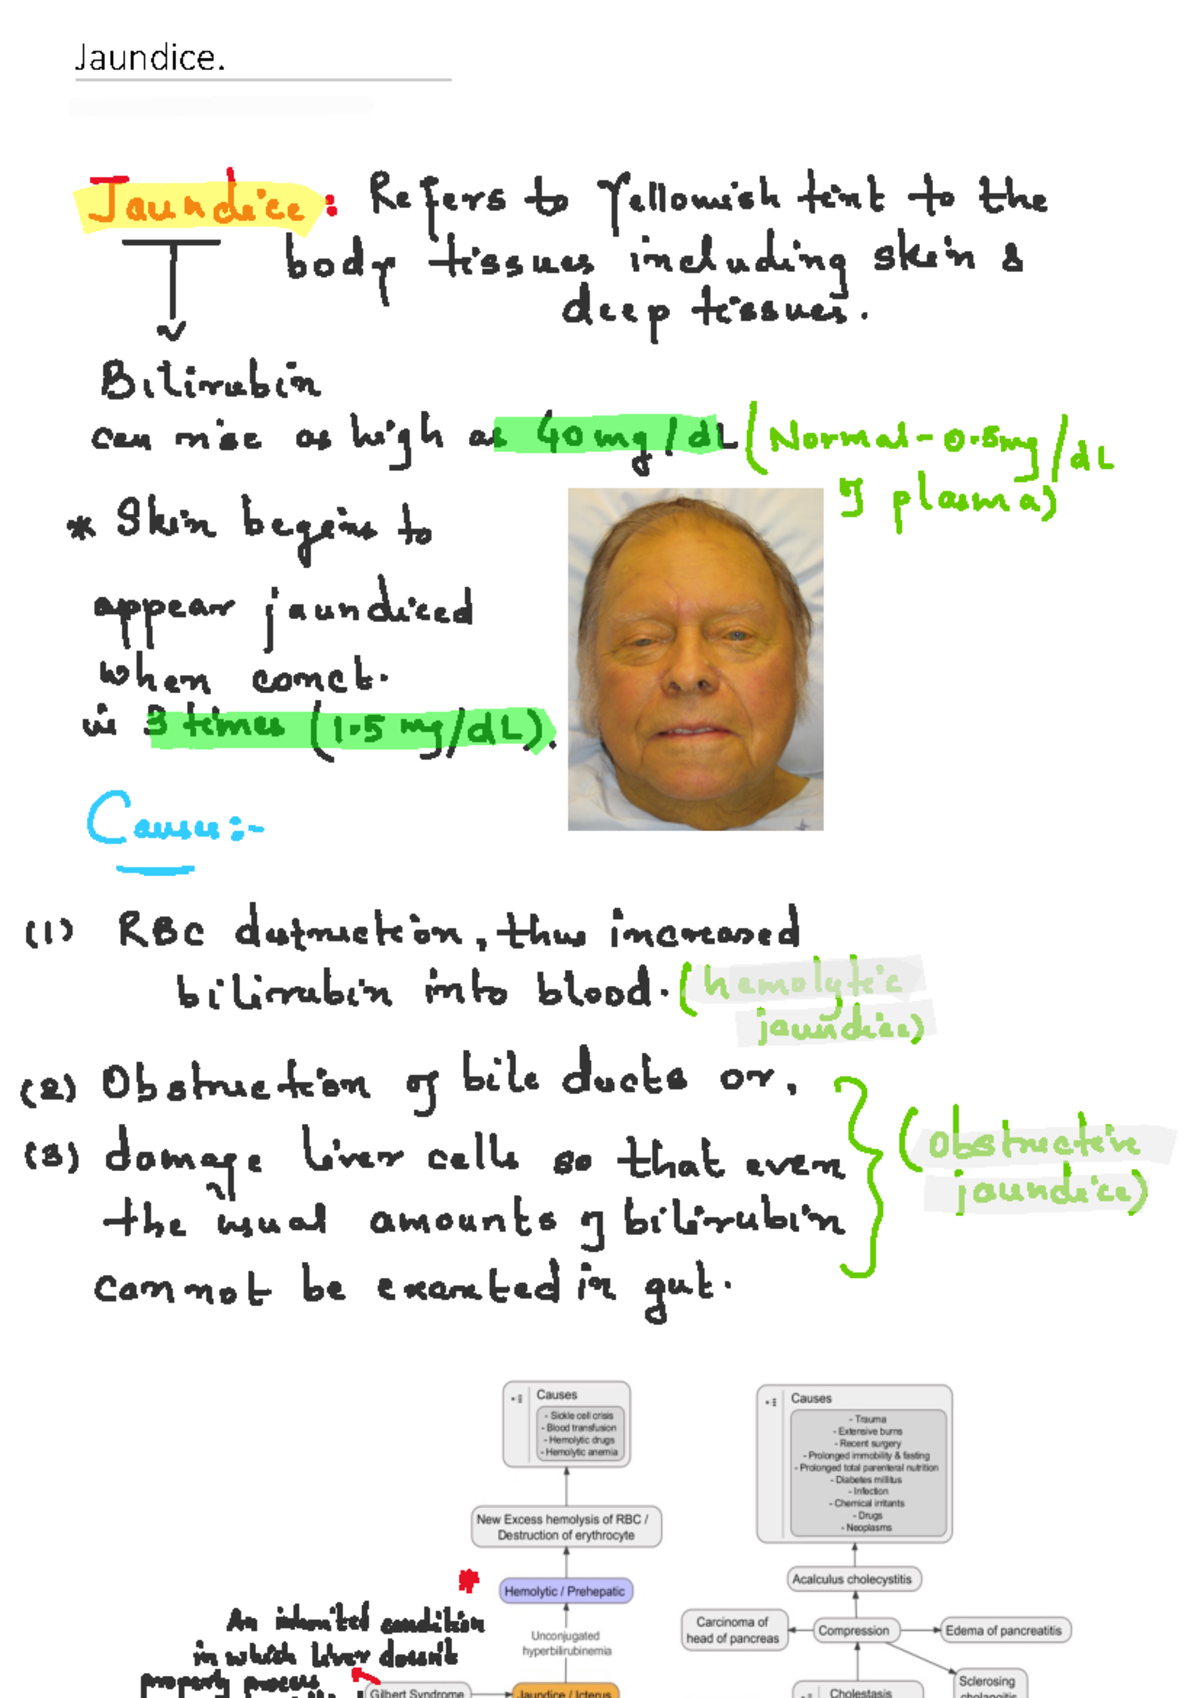 Jaundice.
Jaundice : Refers to Yellowish tint to the
body tissues including skin &
deep tissues.
Bilirubin
can rise as high as 40 mg/dL (Normal - 0.5mg/dL
of plasma)
* Skin begins to
appear jaundiced
when conct.
is 3 times (1.5 mg/dL).
Causes:-
(1) RBC destruction, thus increased
bilirubin into blood. (hemolytic
jaundice)
(2) Obstruction of bile ducts or,
(3) damage liver cells so that even
the usual amounts of bilirubin
cannot be excreted in gut.
(Obstructive
jaundice)
Causes
- Sickle cell crisis
- Blood transfusion
- Hemolytic drugs
- Hemolytic anemia
New Excess hemolysis of RBC /
Destruction of erythrocyte
Hemolytic / Prehepatic
Unconjugated
hyperbilirubinemia
An inherited condition
in which liver doesn't
properly process
Gilbert Syndrome
Jaundice / Icterus
Causes
- Trauma
- Extensive burns
- Recent surgery
- Prolonged immobility & fasting
- Prolonged total parenteral nutrition
- Diabetes millitus
- Infection
- Chemical irritants
- Drugs
- Neoplasms
Acalculus cholecystitis
Carcinoma of
head of pancreas
Compression
Edema of pancreatitis
Sclerosing
cholangitis
Cholestasis